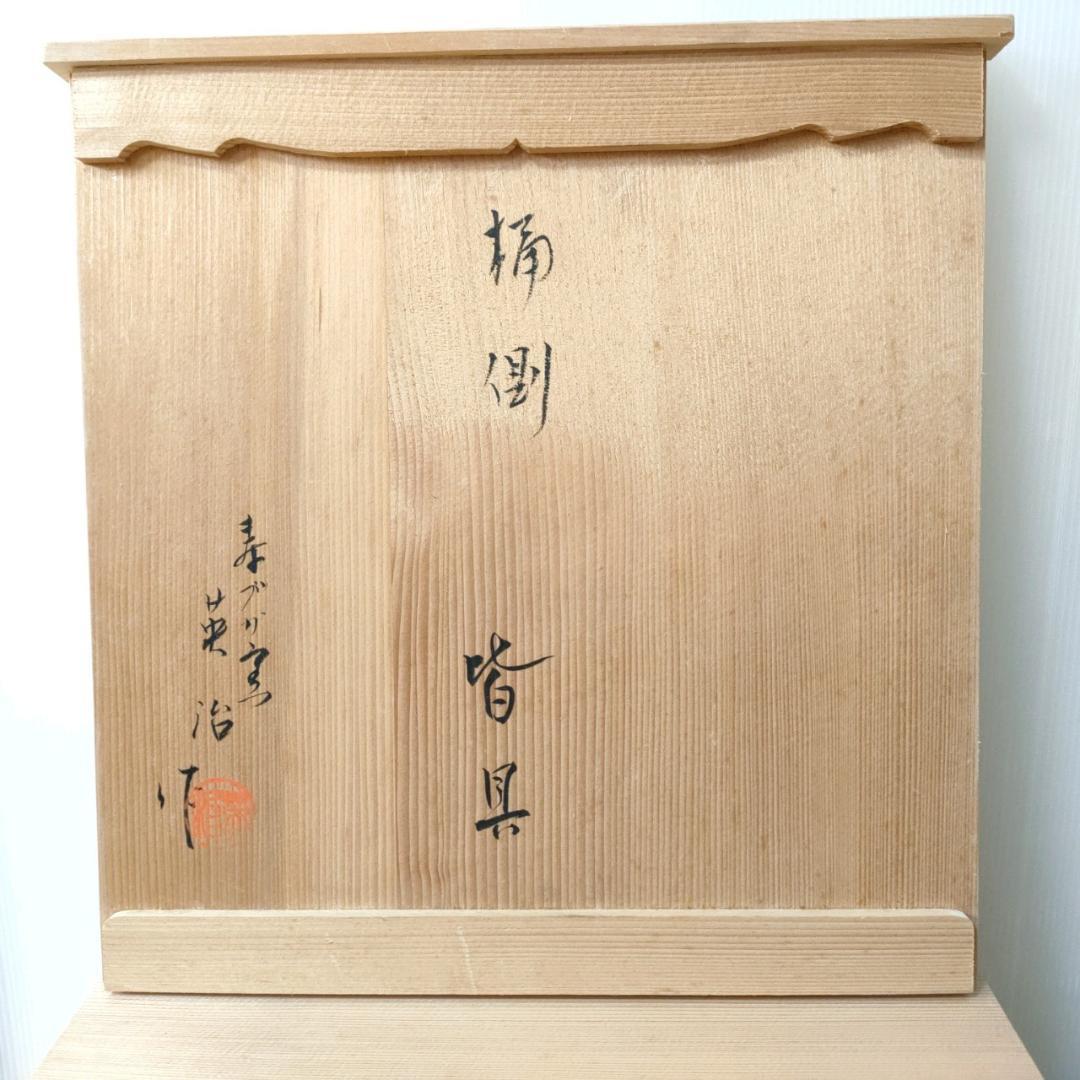 桶側 皆具
寿がり窯
英治
作